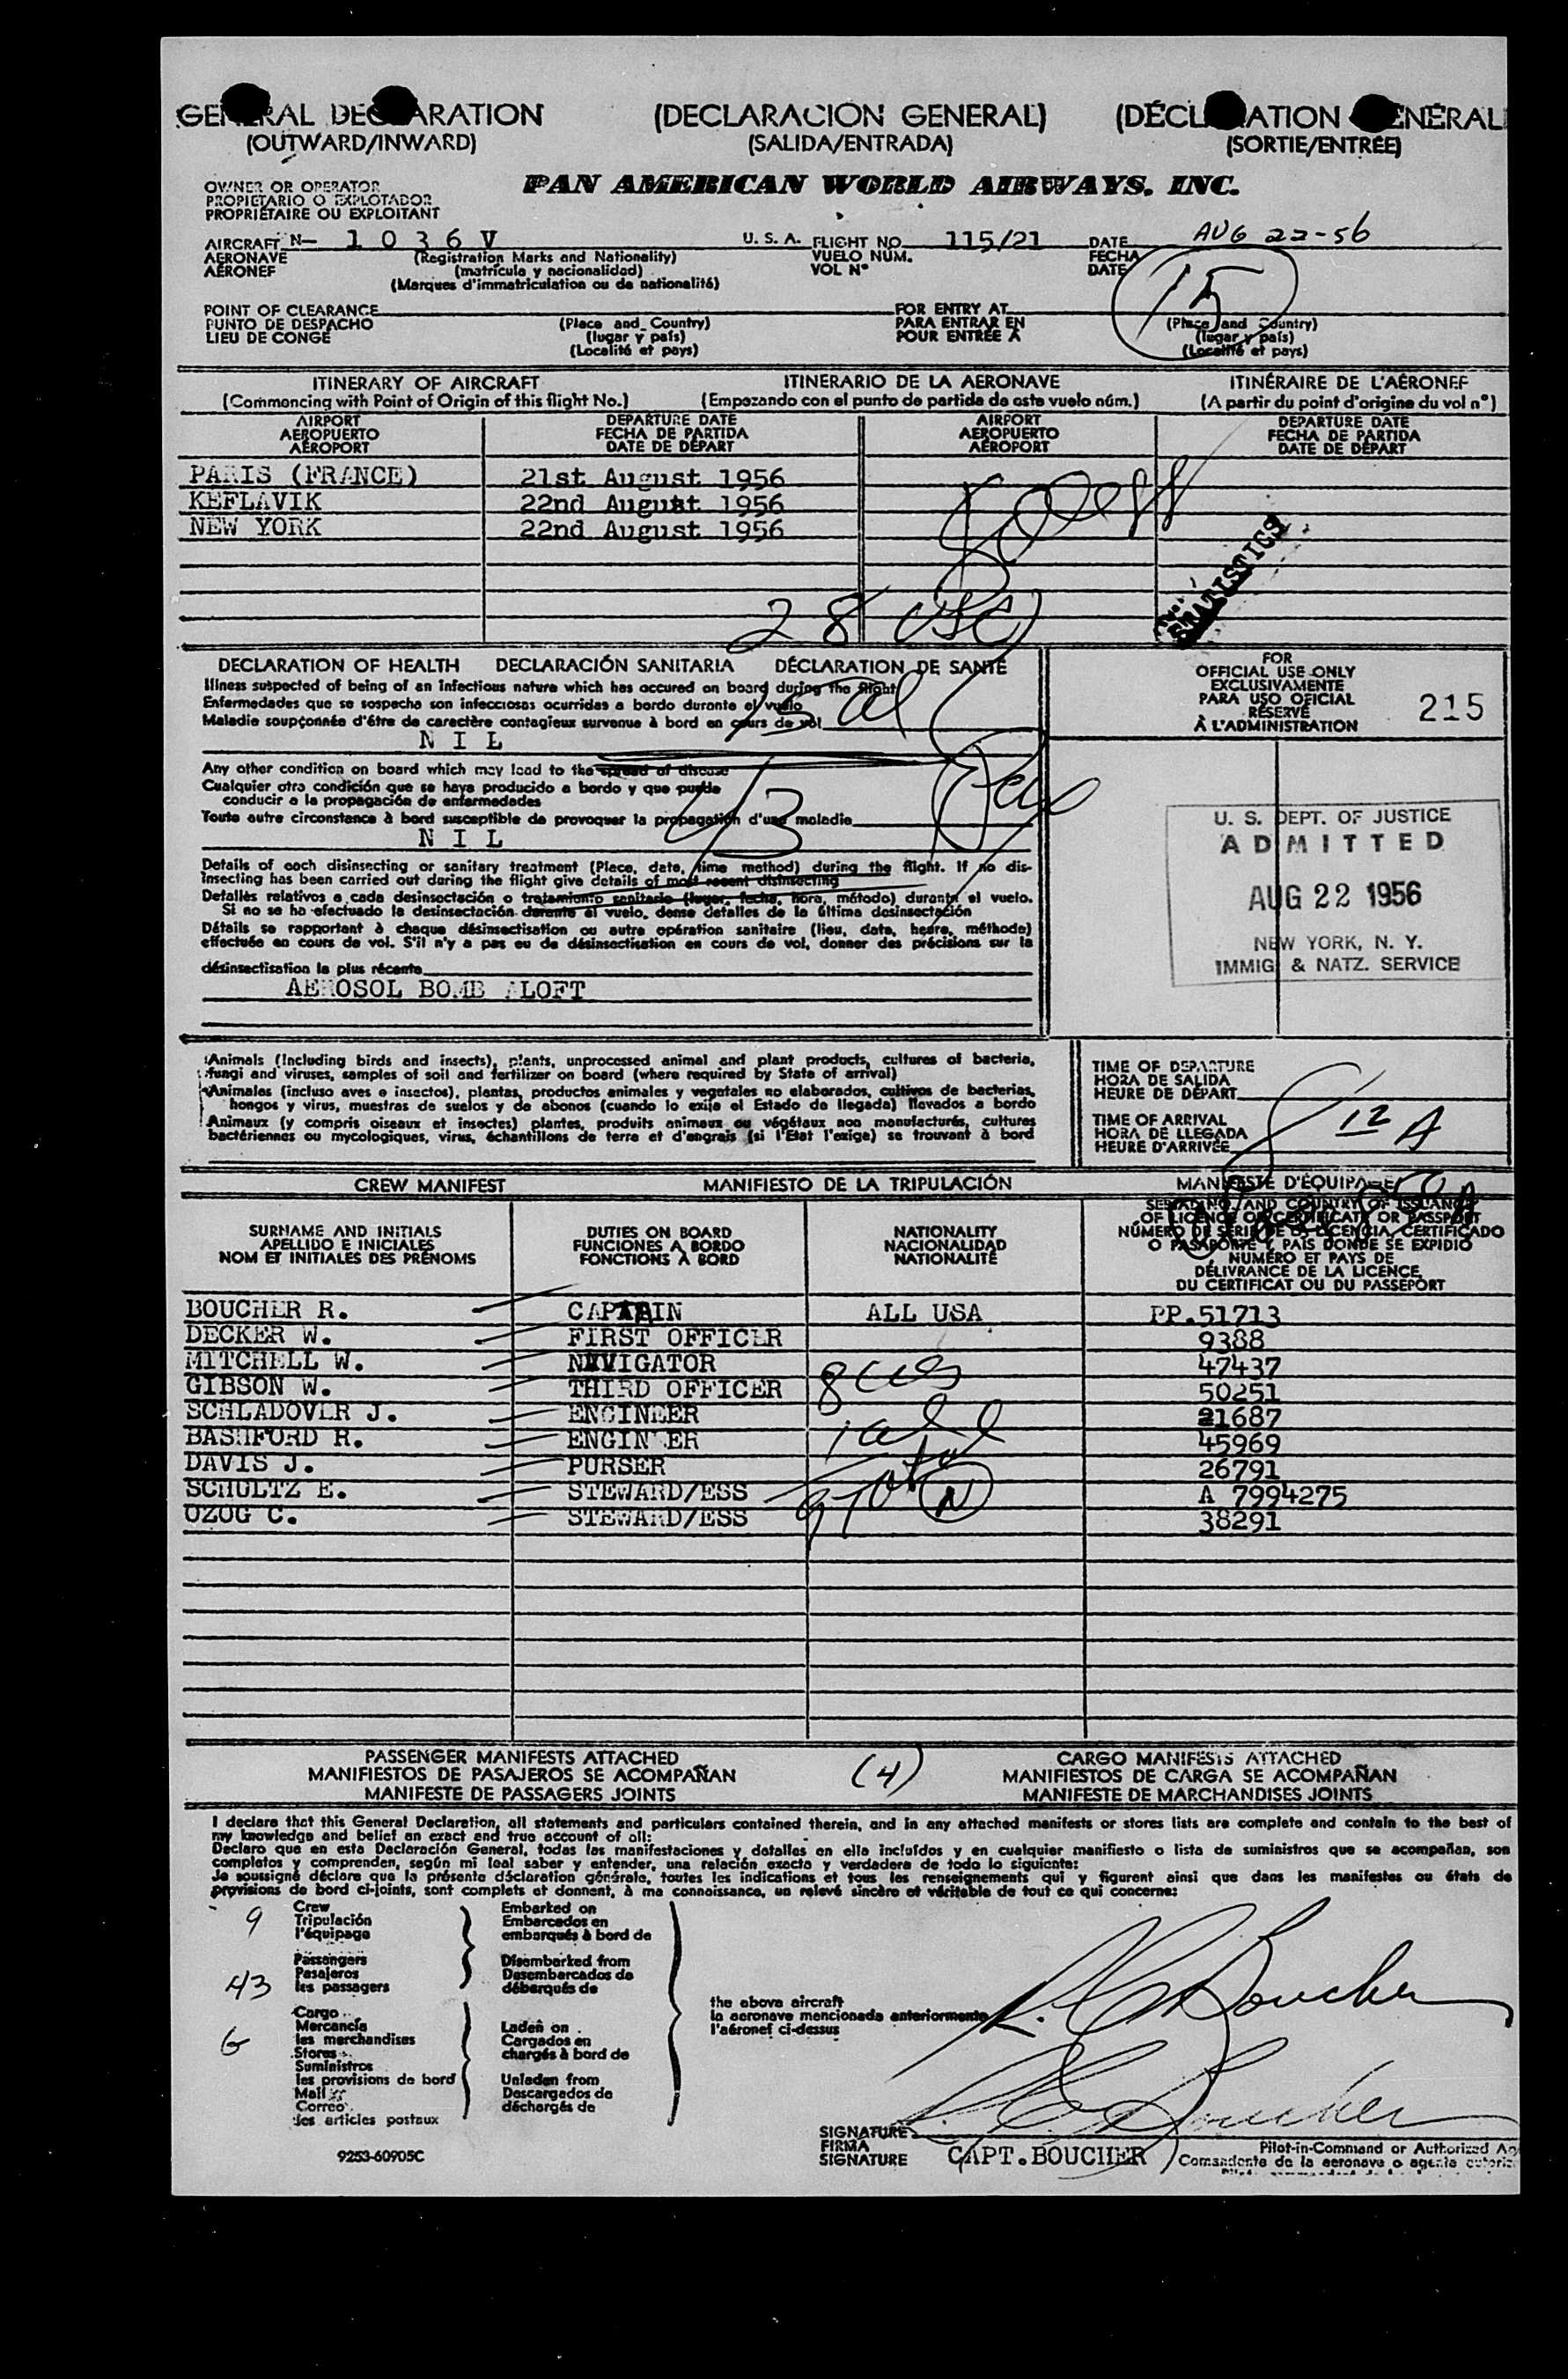 GENERAL DECLARATION (DECLARACIÓN GENERAL) (DÉCLARATION GÉNÉRAL
(OUTWARD/INWARD) (SALIDA/ENTRADA) (SORTIE/ENTRÉE)
OWNER OR OPERATOR
PROPIETARIO O EXPLOTADOR
PROPRIÉTAIRE OU EXPLOITANT
PAN AMERICAN WORLD AIRWAYS, INC.
AIRCRAFT N- 1 0 3 6 V U. S. A. FLIGHT NO. 115/21 DATE AUG 22-56
AERONAVE (Registration Marks and Nationality) VUELO NÚM. FECHA
AÉRONEF (matrícula y nacionalidad) VOL Nº DATE
(Marques d'immatriculation ou de nationalité)
15
POINT OF CLEARANCE FOR ENTRY AT
PUNTO DE DESPACHO (Place and Country) PARA ENTRAR EN (Place and Country)
LIEU DE CONGÉ (lugar y país) POUR ENTRÉE À (lugar y país)
(Localité et pays) (Localité et pays)
ITINERARY OF AIRCRAFT ITINERARIO DE LA AERONAVE ITINÉRAIRE DE L'AÉRONEF
(Commencing with Point of Origin of this flight No.) (Empezando con el punto de partida de este vuelo núm.) (A partir du point d'origine du vol nº)
AIRPORT DEPARTURE DATE AIRPORT DEPARTURE DATE
AEROPUERTO FECHA DE PARTIDA AEROPUERTO FECHA DE PARTIDA
AÉROPORT DATE DE DÉPART AÉROPORT DATE DE DÉPART
PARIS (FRANCE) 21st August 1956
KEFLAVIK 22nd August 1956
NEW YORK 22nd August 1956
STATISTICS
28 USC
DECLARATION OF HEALTH DECLARACIÓN SANITARIA DÉCLARATION DE SANTÉ
Illness suspected of being of an infectious nature which has occured on board during the flight
Enfermedades que se sospecha son infecciosas ocurridas a bordo durante el vuelo
Maladie soupçonnée d'être de caractère contagieux survenue à bord en cours de vol
15 al
N I L
Any other condition on board which may lead to the spread of disease
Cualquier otra condición que se haya producido a bordo y que pueda
conducir a la propagación de enfermedades
Toute autre circonstance à bord susceptible de provoquer la propagation d'une maladie
43
N I L
Details of each disinsecting or sanitary treatment (Place, date, time method) during the flight. If no dis-
insecting has been carried out during the flight give details of most recent disinsecting
Detalles relativos a cada desinsectación o tratamiento sanitario (lugar, fecha, hora, método) durante el vuelo.
Si no se ha efectuado la desinsectación durante el vuelo, dense detalles de la última desinsectación
Détails se rapportant à chaque désinsectisation ou autre opération sanitaire (lieu, date, heure, méthode)
effectuée en cours de vol. S'il n'y a pas eu de désinsectisation en cours de vol, donner des précisions sur la
désinsectisation la plus récente
AEROSOL BOMB ALOFT
FOR
OFFICIAL USE ONLY
EXCLUSIVAMENTE
PARA USO OFICIAL
RÉSERVÉ
À L'ADMINISTRATION
215
U. S. DEPT. OF JUSTICE
ADMITTED
AUG 22 1956
NEW YORK, N. Y.
IMMIG. & NATZ. SERVICE
Animals (Including birds and insects), plants, unprocessed animal and plant products, cultures of bacteria,
fungi and viruses, samples of soil and fertilizer on board (where required by State of arrival)
Animales (incluso aves e insectos), plantas, productos animales y vegetales no elaborados, cultivos de bacterias,
hongos y virus, muestras de suelos y de abonos (cuando lo exija el Estado de llegada) llevados a bordo
Animaux (y compris oiseaux et insectes) plantes, produits animaux ou végétaux non manufacturés, cultures
bactériennes ou mycologiques, virus, échantillons de terre et d'engrais (si l'Etat l'exige) se trouvant à bord
TIME OF DEPARTURE
HORA DE SALIDA
HEURE DE DÉPART
TIME OF ARRIVAL
HORA DE LLEGADA
HEURE D'ARRIVÉE
8 12 A
CREW MANIFEST MANIFIESTO DE LA TRIPULACIÓN MANIFESTE D'ÉQUIPAGE
SURNAME AND INITIALS
APELLIDO E INICIALES
NOM ET INITIALES DES PRÉNOMS
DUTIES ON BOARD
FUNCIONES A BORDO
FONCTIONS À BORD
NATIONALITY
NACIONALIDAD
NATIONALITÉ
SERIAL NO. AND COUNTRY OF ISSUANCE
OF LICENCE OR CERTIFICATE OR PASSPORT
NÚMERO DE SERIE DE LA LICENCIA, CERTIFICADO
O PASAPORTE Y PAÍS DONDE SE EXPIDIÓ
NUMÉRO ET PAYS DE
DÉLIVRANCE DE LA LICENCE,
DU CERTIFICAT OU DU PASSEPORT
BOUCHER R. CAPTAIN ALL USA PP.51713
DECKER W. FIRST OFFICER 9388
MITCHELL W. NAVIGATOR 47437
GIBSON W. THIRD OFFICER 50251
SCHLADOVER J. ENGINEER 21687
BASHFORD R. ENGINEER 45969
DAVIS J. PURSER 26791
SCHULTZ E. STEWARD/ESS A 7994275
OZOG C. STEWARD/ESS 38291
8 cus
1 al
9 Total N
PASSENGER MANIFESTS ATTACHED (4) CARGO MANIFESTS ATTACHED
MANIFIESTOS DE PASAJEROS SE ACOMPAÑAN MANIFIESTOS DE CARGA SE ACOMPAÑAN
MANIFESTE DE PASSAGERS JOINTS MANIFESTE DE MARCHANDISES JOINTS
I declare that this General Declaration, all statements and particulars contained therein, and in any attached manifests or stores lists are complete and contain to the best of
my knowledge and belief an exact and true account of all:
Declaro que en esta Declaración General, todas las manifestaciones y detalles en ella incluídos y en cualquier manifiesto o lista de suministros que se acompañan, son
completos y comprenden, según mi leal saber y entender, una relación exacta y verdadera de todo lo siguiente:
Je soussigné déclare que la présente déclaration générale, toutes les indications et tous les renseignements qui y figurent ainsi que dans les manifestes ou états de
provisions de bord ci-joints, sont complets et donnent, à ma connaissance, un relevé sincère et véritable de tout ce qui concerne:
9 Crew
Tripulación
l'équipage
43 Passengers
Pasajeros
les passagers
G Cargo
Mercancía
les marchandises
Stores
Suministros
les provisions de bord
Mail
Correo
les articles postaux
Embarked on
Embarcados en
embarqués à bord de
Disembarked from
Desembarcados de
débarqués de
Laden on
Cargados en
chargés à bord de
Unladen from
Descargados de
déchargés de
the above aircraft
la aeronave mencionada anteriormente
l'aéronef ci-dessus
R. C. Boucher
R. C. Boucher
SIGNATURE
FIRMA
SIGNATURE
CAPT. BOUCHER
Pilot-in-Command or Authorized Ag
Comandante de la aeronave o agente autoriz
9253-60905C